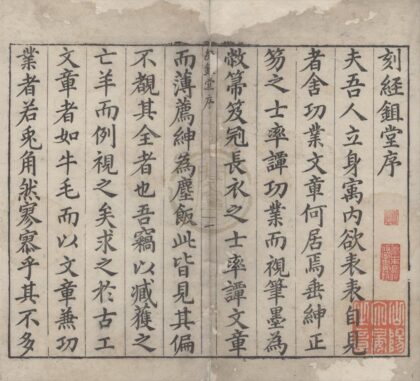 刻經鉏堂序
夫吾人立身寓内欲表表自見
者舍功業文章何居焉垂紳正
笏之士率譚功業而視筆墨為
敝箒笈冠長衣之士率譚文章
而薄薦紳為塵飯此皆見其偏
不覩其全者也吾竊以臧獲之
亡羊而例視之矣求之於古工
文章者如牛毛而以文章兼功
業者若兎角然寥寥乎其不多